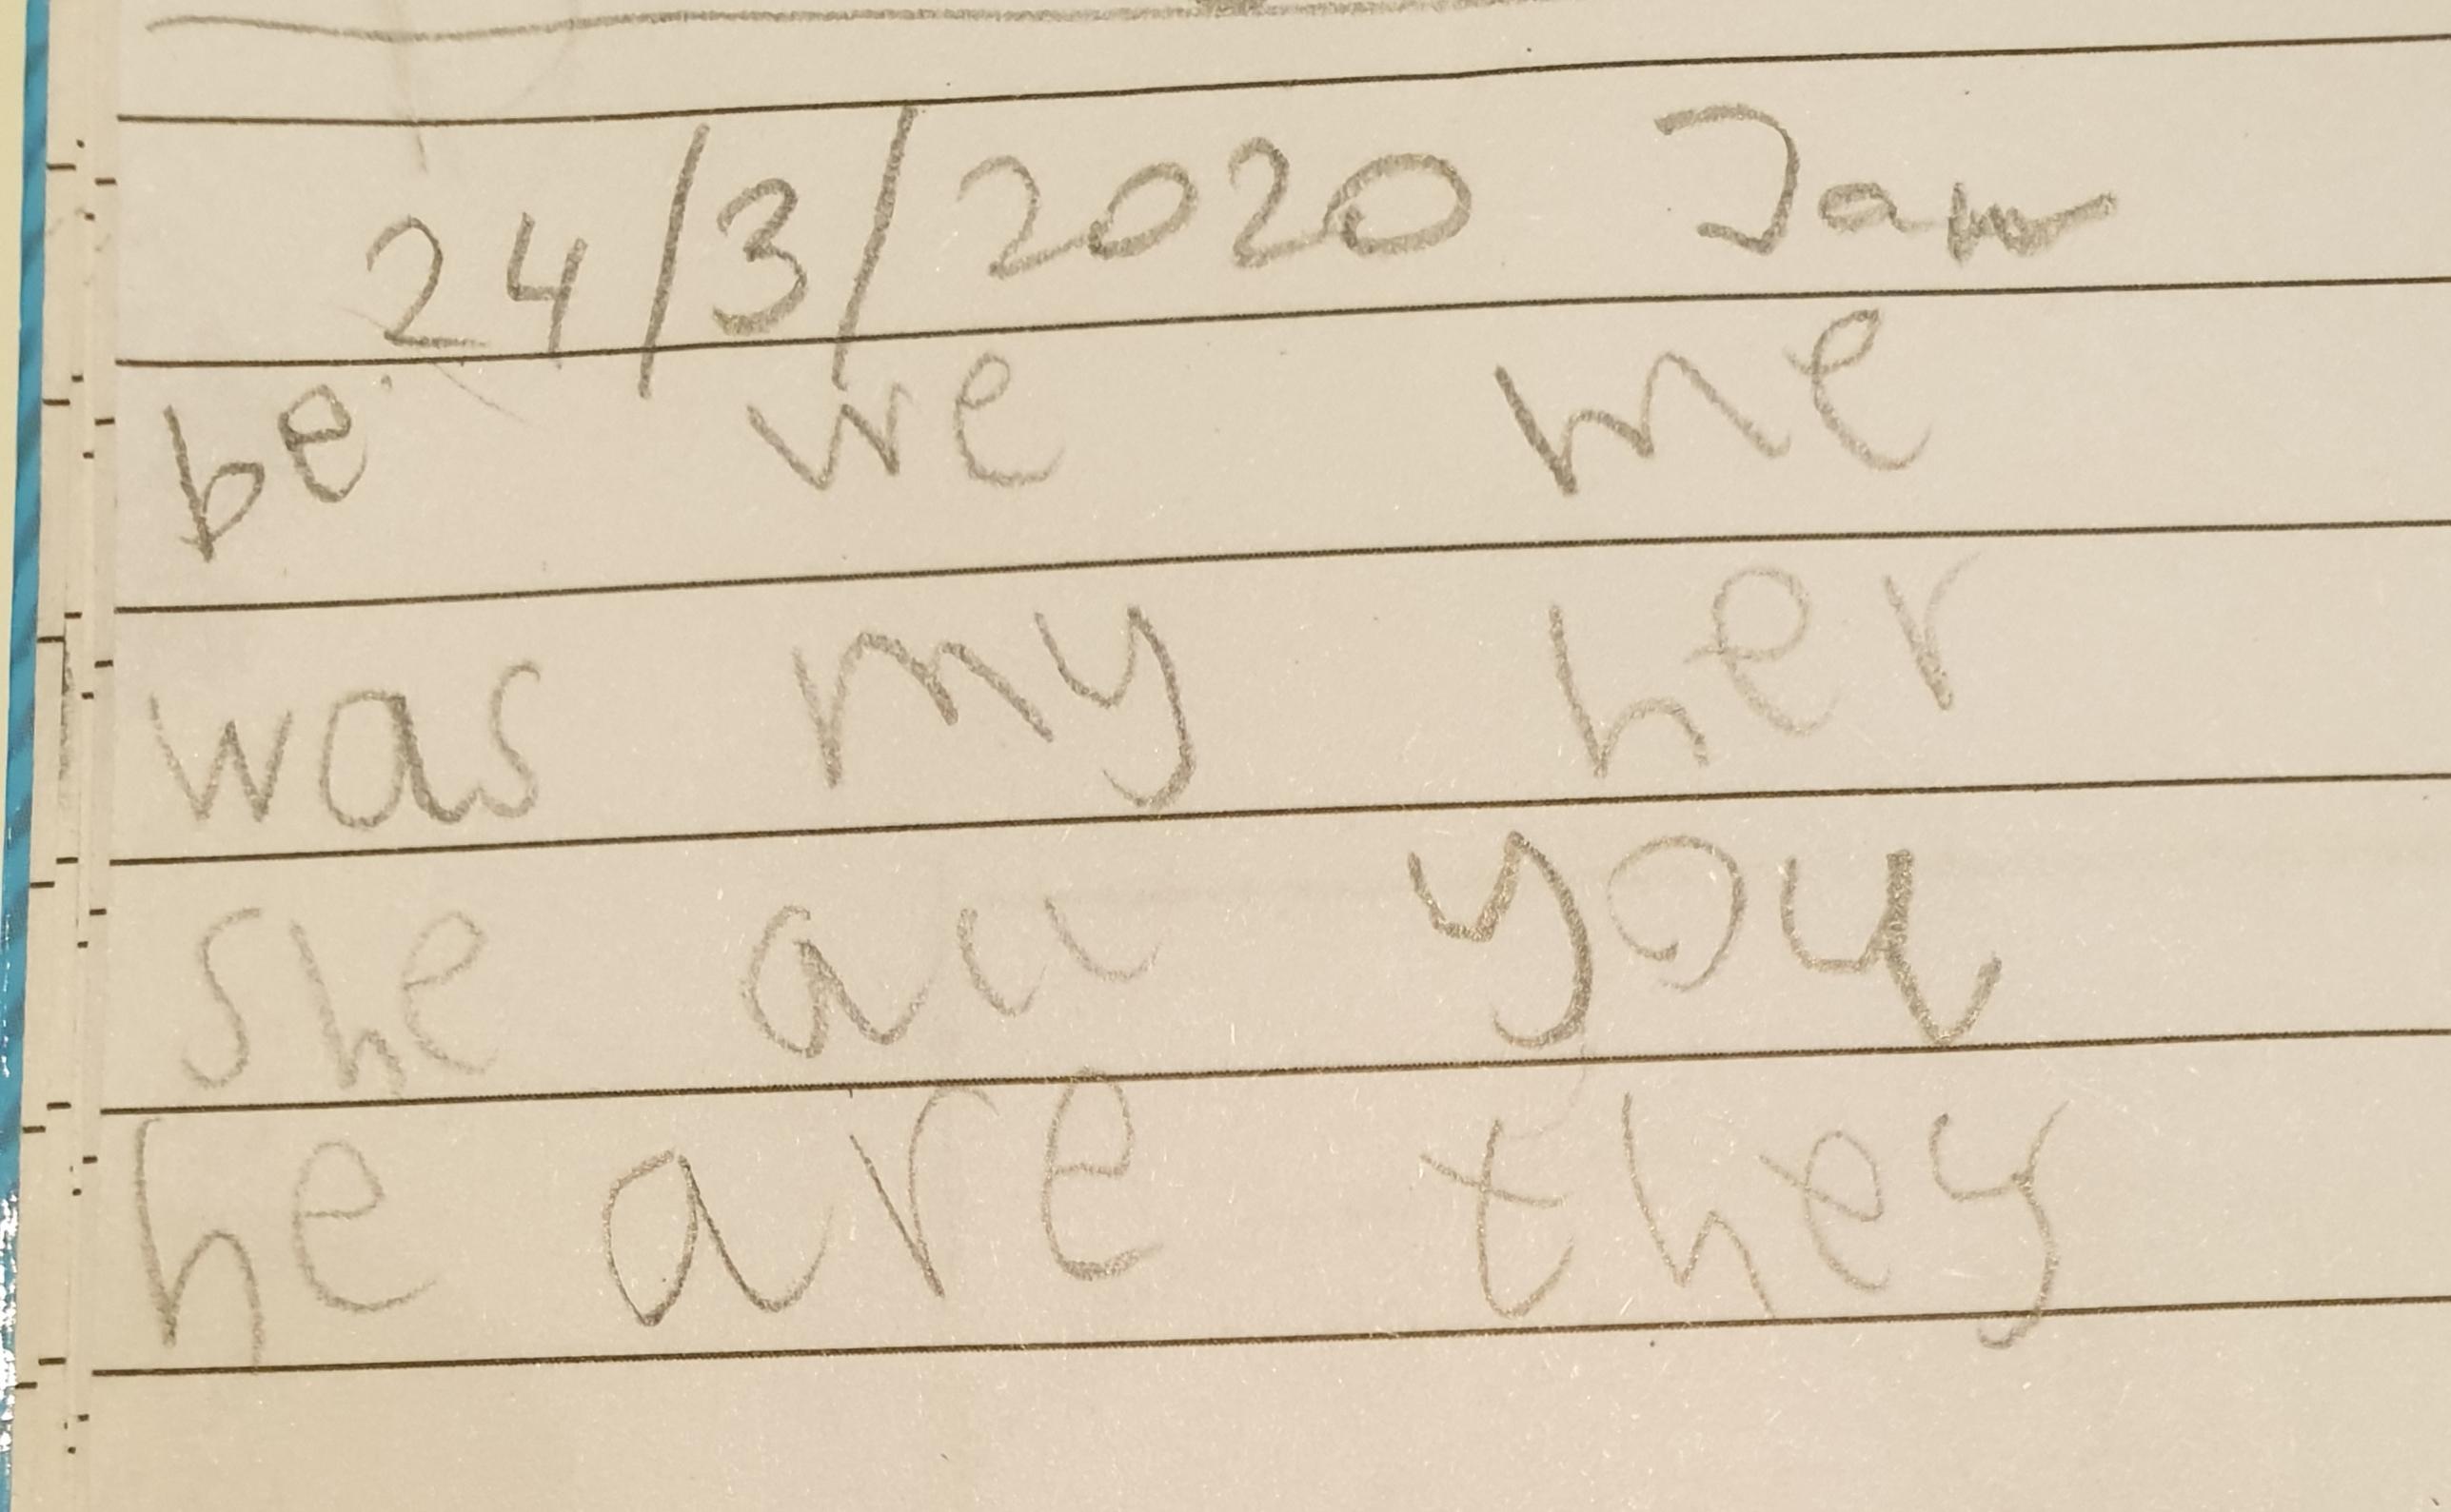 24/3/2020
be we me
was my her
she all you
he are they